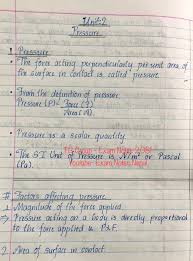 Unit:2
Pressure
1 Pressure
• The force acting perpendicularly per unit area of
the surface in contact is called pressure.
• From the definition of pressure
Pressure (P) = Force (F)
Area (A)
• Pressure is a scalar quantity.
• The SI Unit of Pressure is N/m² or Pascal
(Pa).
# Factors affecting pressure
1 Magnitude of the force applied
⇒ Pressure acting on a body is directly proportional
to the force applied ie. P∝F.
2. Area of surface in contact